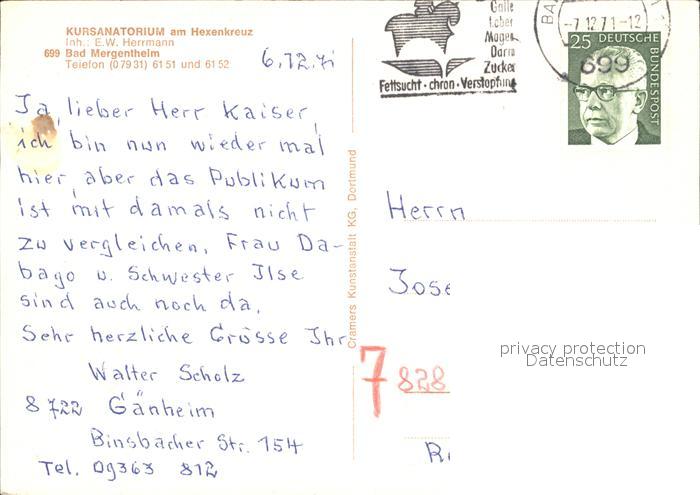 KURSANATORIUM am Hexenkreuz
Inh.: E.W. Herrmann
699 Bad Mergentheim
Telefon (07931) 6151 und 6152
6.12.71
Ja, lieber Herr Kaiser,
ich bin nun wieder mal
hier, aber das Publikum
ist mit damals nicht
zu vergleichen. Frau Da-
bago u. Schwester Ilse
sind auch noch da.
Sehr herzliche Grüsse Ihr
Walter Scholz
8722 Gänheim
Binsbacher Str. 154
Tel. 09363 812
Cramers Kunstanstalt KG, Dortmund
Galle
Leber
Magen
Darm
Zucker
Fettsucht · chron · Verstopfung
BA
-7.12.71-12
699
25 DEUTSCHE
BUNDESPOST
Herrn
Jose
7 828
R
privacy protection
Datenschutz